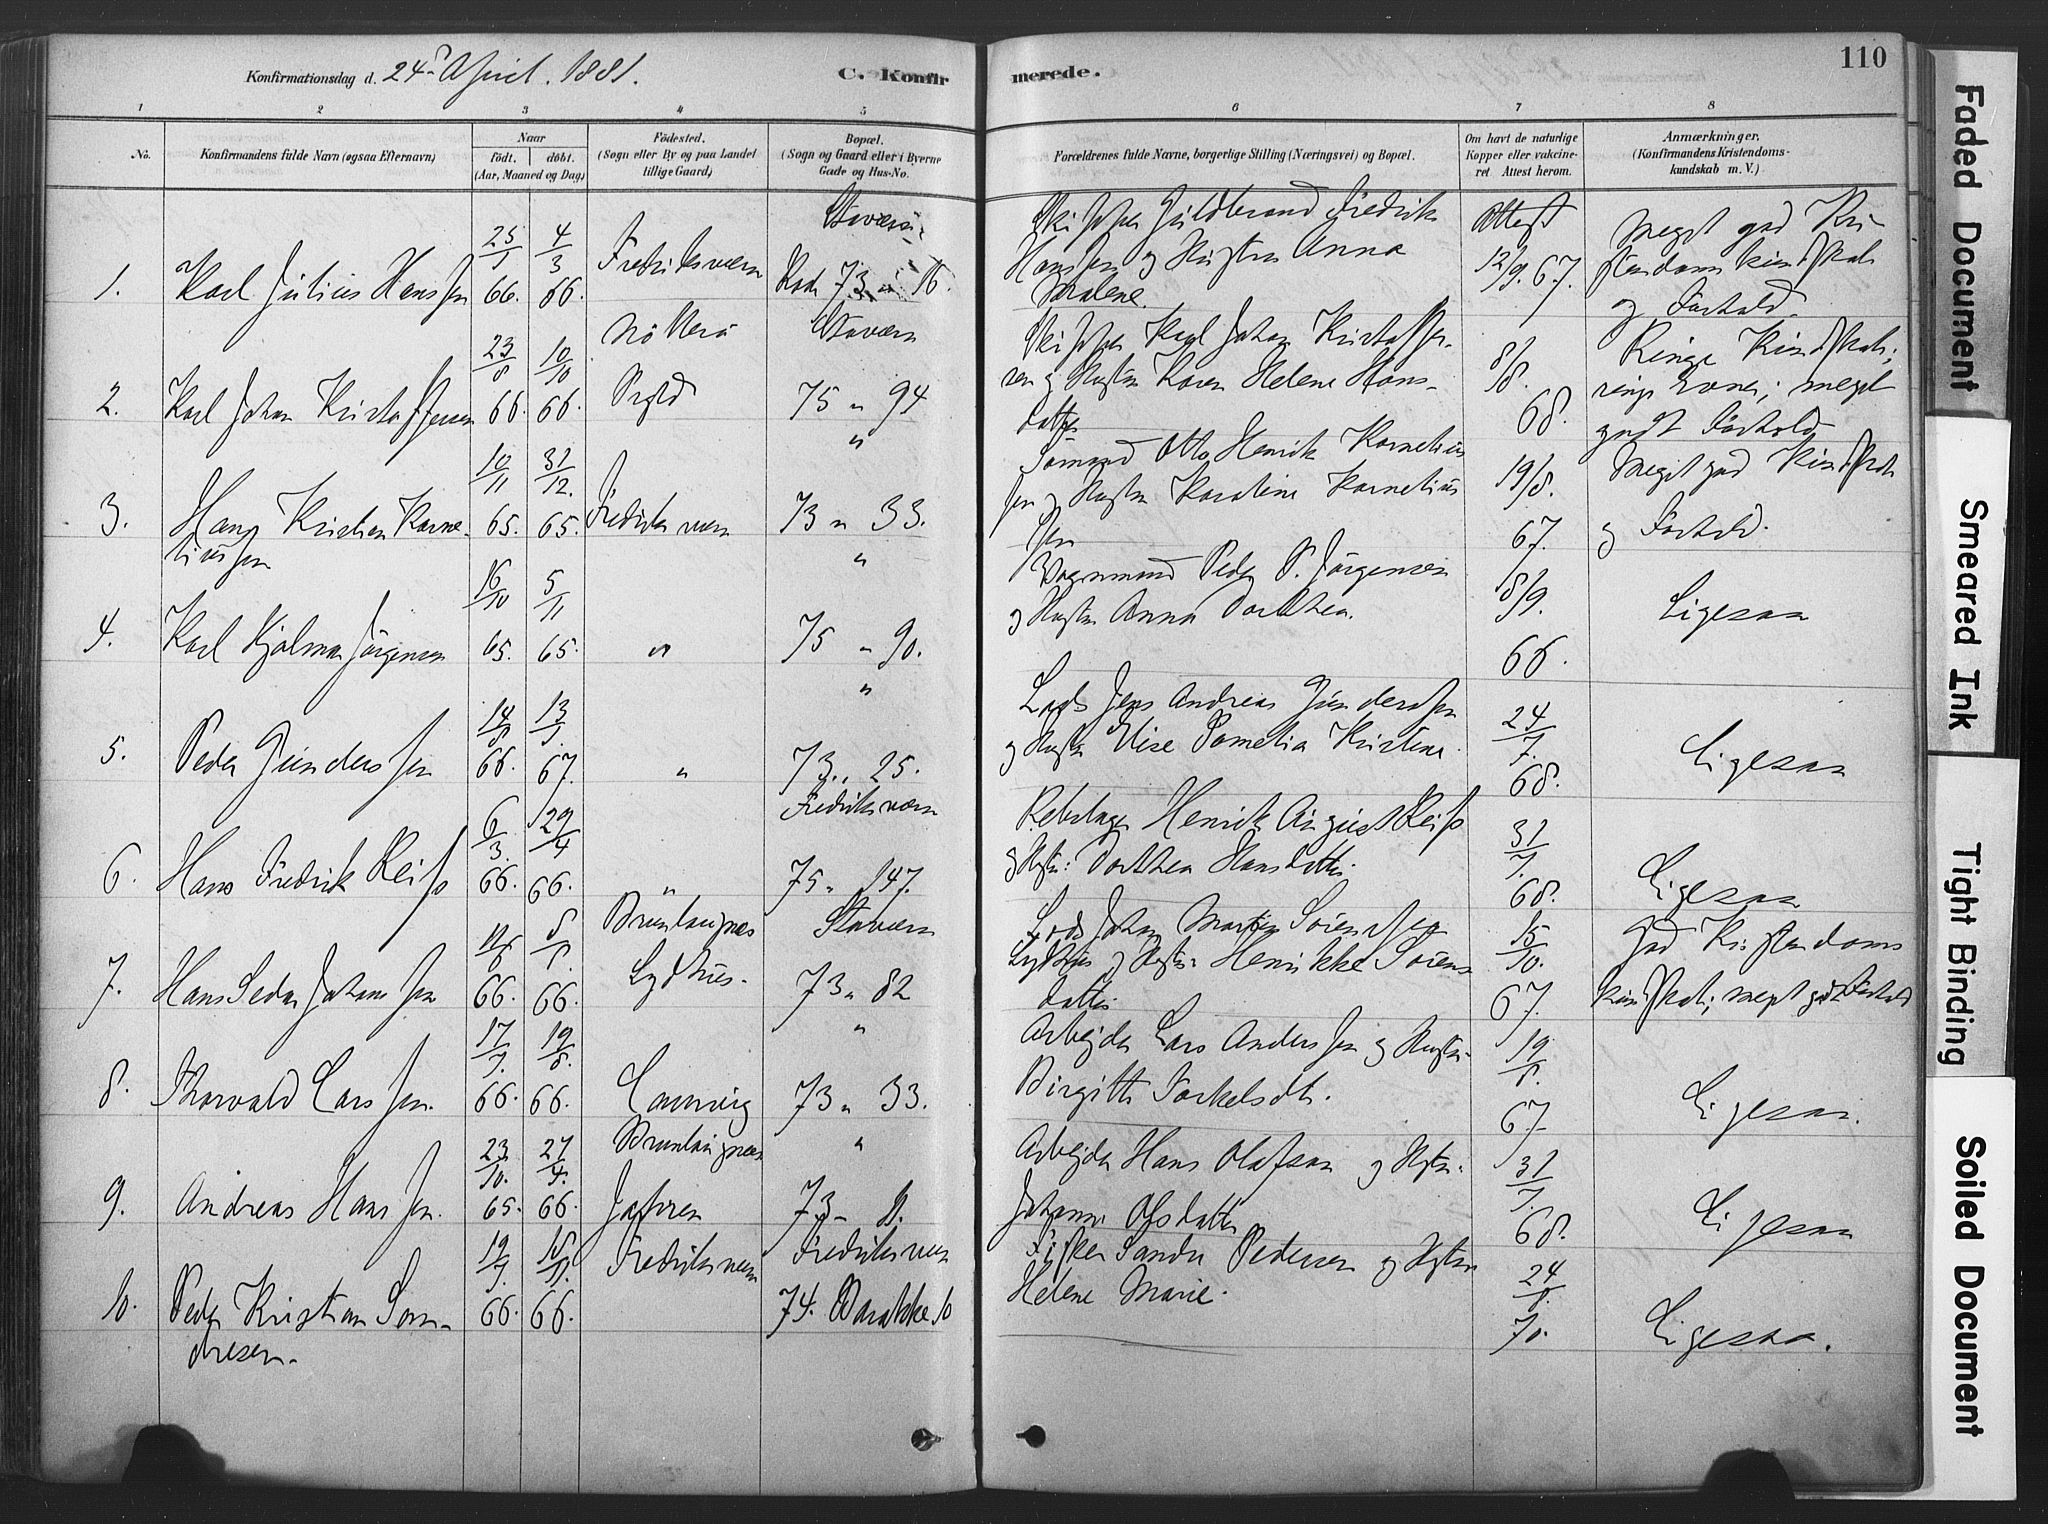 110
Konfirmationsdag d. 24de April 1881.
C. Konfirmerede.
1 2 3 4 5 6 7 8
No.
Konfirmandens fulde Navn (ogsaa Efternavn)
Naar
födt. döbt.
(Aar, Maaned og Dag)
Födested.
(Sogn eller By og paa Landet
tillige Gaard)
Bopæl.
(Sogn og Gaard eller i Byerne
Gade og Hus-No.
Forældrenes fulde Navne, borgerlige Stilling (Næringsvei) og Bopæl.
Om havt de naturlige
Kopper eller vakcine-
ret Attest herom.
Anmærkninger.
(Konfirmandens Kristendoms-
kundskab m. V.)
1. Karl Julius Hanssen
25/1 66. 4/3 66.
Fredriksværn
Staværn
73 " 16.
Skipper Hildbrand Fredrik
Hanssen og Hustru Anna
Attest
12/9. 67.
Meget god Kri-
stendomskundskab
og Forhold.
2. Karl Johan Kristoffersen
23/8 66. 10/10 66.
Nötterö
Staværn
75 " 94
Skipper Karl Johan Kristoffer-
sen og Hustru Karen Helene Hans-
datter
8/8. 68.
Ringe Kundskab;
ringe Evner; meget
godt Forhold
3. Hans Kristian Korne-
liussen
10/11 65. 31/12. 65.
Fredriksværn
"
73 " 33.
Sömand Otto Henrik Kornelius
sen og Hustru Karoline Kornelius
sen
19/8. 67.
Meget god Kundskab
og Forhold.
4. Karl Hjalmar Jörgensen
16/10 65. 5/11 65.
"
"
75 " 90.
Vognmand Peder P. Jörgensen
og Hustru Anna Dorthea.
8/9. 66.
Ligesaa
5. Peder Gunderssen
14/8 66. 13/1. 67.
"
"
73 " 25.
Lods Jens Andreas Gunderssen
og Hustru Elise Pomelia Kristine.
24/7. 68.
Ligesaa
6. Hans Fredrik Reiss
6/3. 66. 29/4 66.
"
Fredriksværn
75 " 147.
Rebslager Henrik August Reiss
og Hustru: Dorthea Hansdatter.
31/7. 68.
Ligesaa
7. Hans Peder Johanssen
66. 66.
Brunlangnæs
Lydhus.
Staværn
73 " 82
Lods Johan Martin Sörenssen
Lydhus og Hustru Henrikke Sörens
datter
15/10. 67.
God Kristendoms
kundskab; meget godt Forhold
8. Thorvald Larssen.
17/7. 66. 19/8. 66.
Laurvig
"
73 " 33.
Arbejder Lars Anderssen og Hustru
Birgitte Torkelsdt.
19/8. 67.
Ligesaa.
9. Andreas Hanssen.
23/10. 65. 27/4. 66.
Brunlangnæs
"
73 "
Arbejder Hans Olafsen og Hustru
Johanne Olsdatter
31/7. 68.
Ligesaa
10. Peder Kristian San-
dresen.
66. 66.
Fredriksværn
Fredriksværn
74. Barakke 10
Fisker Sander Pedersen og Hustru
Helene Marie.
24/8. 70.
Ligesaa.
Faded Document
Smeared Ink
Tight Binding
Soiled Document